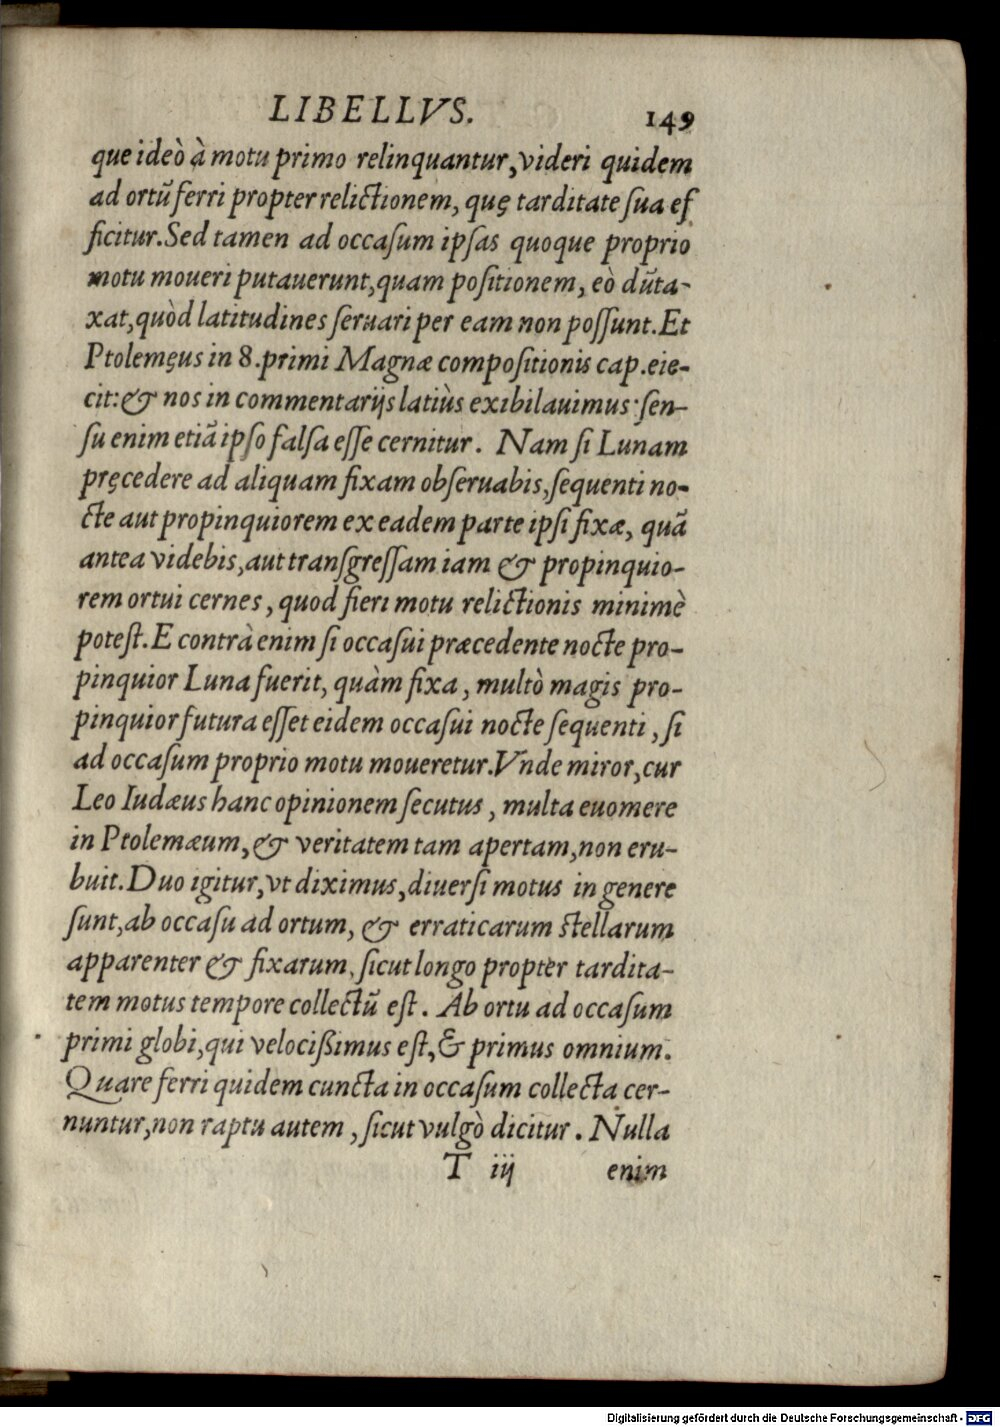 LIBELLVS. 149
que ideò à motu primo relinquantur, videri quidem
ad ortū ferri propter relictionem, quę tarditate ſua ef
ficitur. Sed tamen ad occaſum ipſas quoque proprio
motu moueri putauerunt, quam poſitionem, eò dūta-
xat, quòd latitudines ſeruari per eam non poſſunt. Et
Ptolemęus in 8. primi Magnæ compoſitionis cap. eie-
cit: & nos in commentarijs latiùs exibilauimus: ſen-
ſu enim etiā ipſo falſa eſſe cernitur. Nam ſi Lunam
pręcedere ad aliquam fixam obſeruabis, ſequenti no-
cte aut propinquiorem ex eadem parte ipſi fixæ, quā
antea videbis, aut tranſgreſſam iam & propinquio-
rem ortui cernes, quod fieri motu relictionis minimè
poteſt. E contrà enim ſi occaſui præcedente nocte pro-
pinquior Luna fuerit, quàm fixa, multò magis pro-
pinquior futura eſſet eidem occaſui nocte ſequenti, ſi
ad occaſum proprio motu moueretur. Vnde miror, cur
Leo Iudæus hanc opinionem ſecutus, multa euomere
in Ptolemæum, & veritatem tam apertam, non eru-
buit. Duo igitur, vt diximus, diuerſi motus in genere
ſunt, ab occaſu ad ortum, & erraticarum ſtellarum
apparenter & fixarum, ſicut longo propter tardita-
tem motus tempore collectū eſt. Ab ortu ad occaſum
primi globi, qui velocißimus eſt, & primus omnium.
Quare ferri quidem cuncta in occaſum collecta cer-
nuntur, non raptu autem, ſicut vulgò dicitur. Nulla
T iij enim
Digitalisierung gefördert durch die Deutsche Forschungsgemeinschaft - DFG